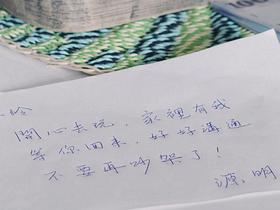 給
開心去玩，家裡有我
等你回來，好好溝通
不要再吵架了！
源，明